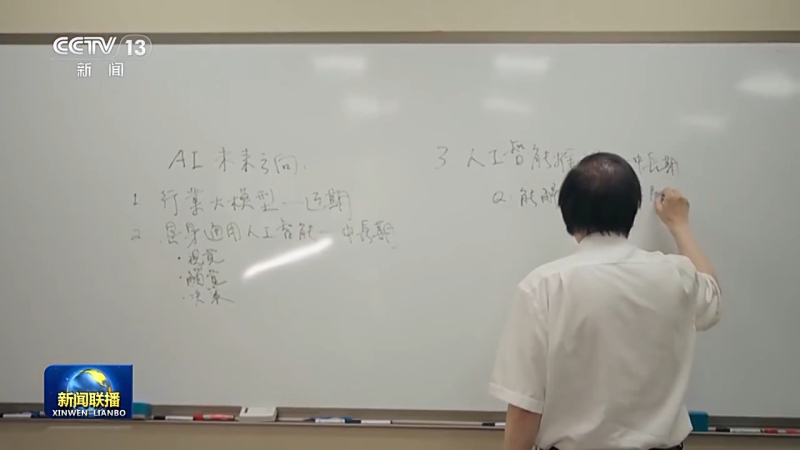 CCTV 13
新闻
AI 未来方向:
1. 行業大模型—近期
2. 具身通用人工智能—中長期
·視覺
·觸覺
·决策
3 人工智能 中長期
Q: 能解
新闻联播
XINWEN LIANBO